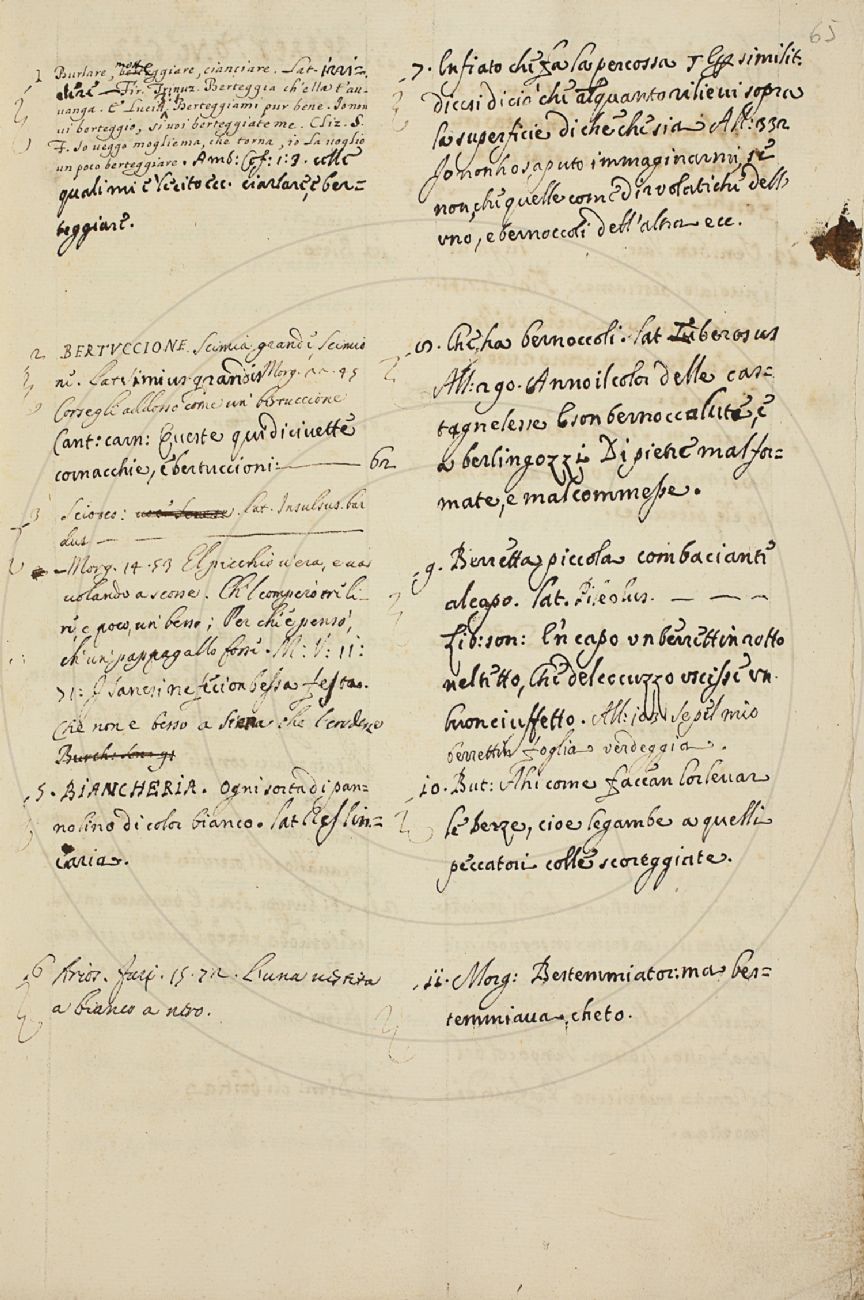 65
1 Burlare, motteggiare, cianciare. Lat. irri-
dere — Fir. Trinuz. Berteggia ch'ella t'au-
uanga. E Lucid. Berteggiami pur bene. Io non
ui berteggio, si voi berteggiate me. Cliz. S.
F. Io veggo mogliema, che torna, io la uoglio
un poco berteggiare. Amb: Cof: 1:3. colle
quali mi è ecc. ciarlare, e ber-
teggiare.
2 BERTVCCIONE. Scimia grande, Scimio
ne. Lat. simius grandis Morg. 45
Corsegli addosso come un' bertuccione
Cant: carn: Queste qui di ciuette
cornacchie, e bertuccioni: — 62
3 Sciocco: Lat. Insulsus. bar
dus — —
— Morg. 14. 53 El picchio u'era, e ua
uolando a scosse. Ch'l comperò tre li-
re, e poco, un' besso; Per chè pensò,
ch'un pappagallo fosse. M: V: 11:
71: I Sanesi ne fecion bessa festa.
Che non è besso a Siena che
Burch:
5. BIANCHERIA. Ogni sorta di pan-
no lino di color bianco. lat. Res lin-
tearia.
6 Arios. Fur. 15. 72. L'una ueste
a bianco a nero.
7. Enfiato che fa la percossa & per similit.
dicesi di ciò che alquanto rilieui sopra
la superficie di che che sia All: 332
Io non ho saputo immaginarmi, se
non, che quelle come di volatiche dell'
vno, e bernoccoli dell'altra ecc.
8. Che ha bernoccoli. lat. Tuberosus
All: 290. Anno il color delle cas-
tagne lesse E son bernoccalute, e
a berlingozzi Di pietre mal for-
mate, e mal commesse.
9. Berretta piccola combaciante
al capo. lat. Pileolus. — — —
Lib: son: En capo vn berrettin rotto
nel tutto, Che del cocuzzo vscisse vn
buon ciuffetto. All: se pel mio
berrettin foglia verdeggia.
10. But: Ahi come faccan lor leuar
le berze, cioe le gambe a quelli
peccatori colle scoreggiate.
11. Morg: Bestemmiator: ma bes-
temmiaua, cheto.